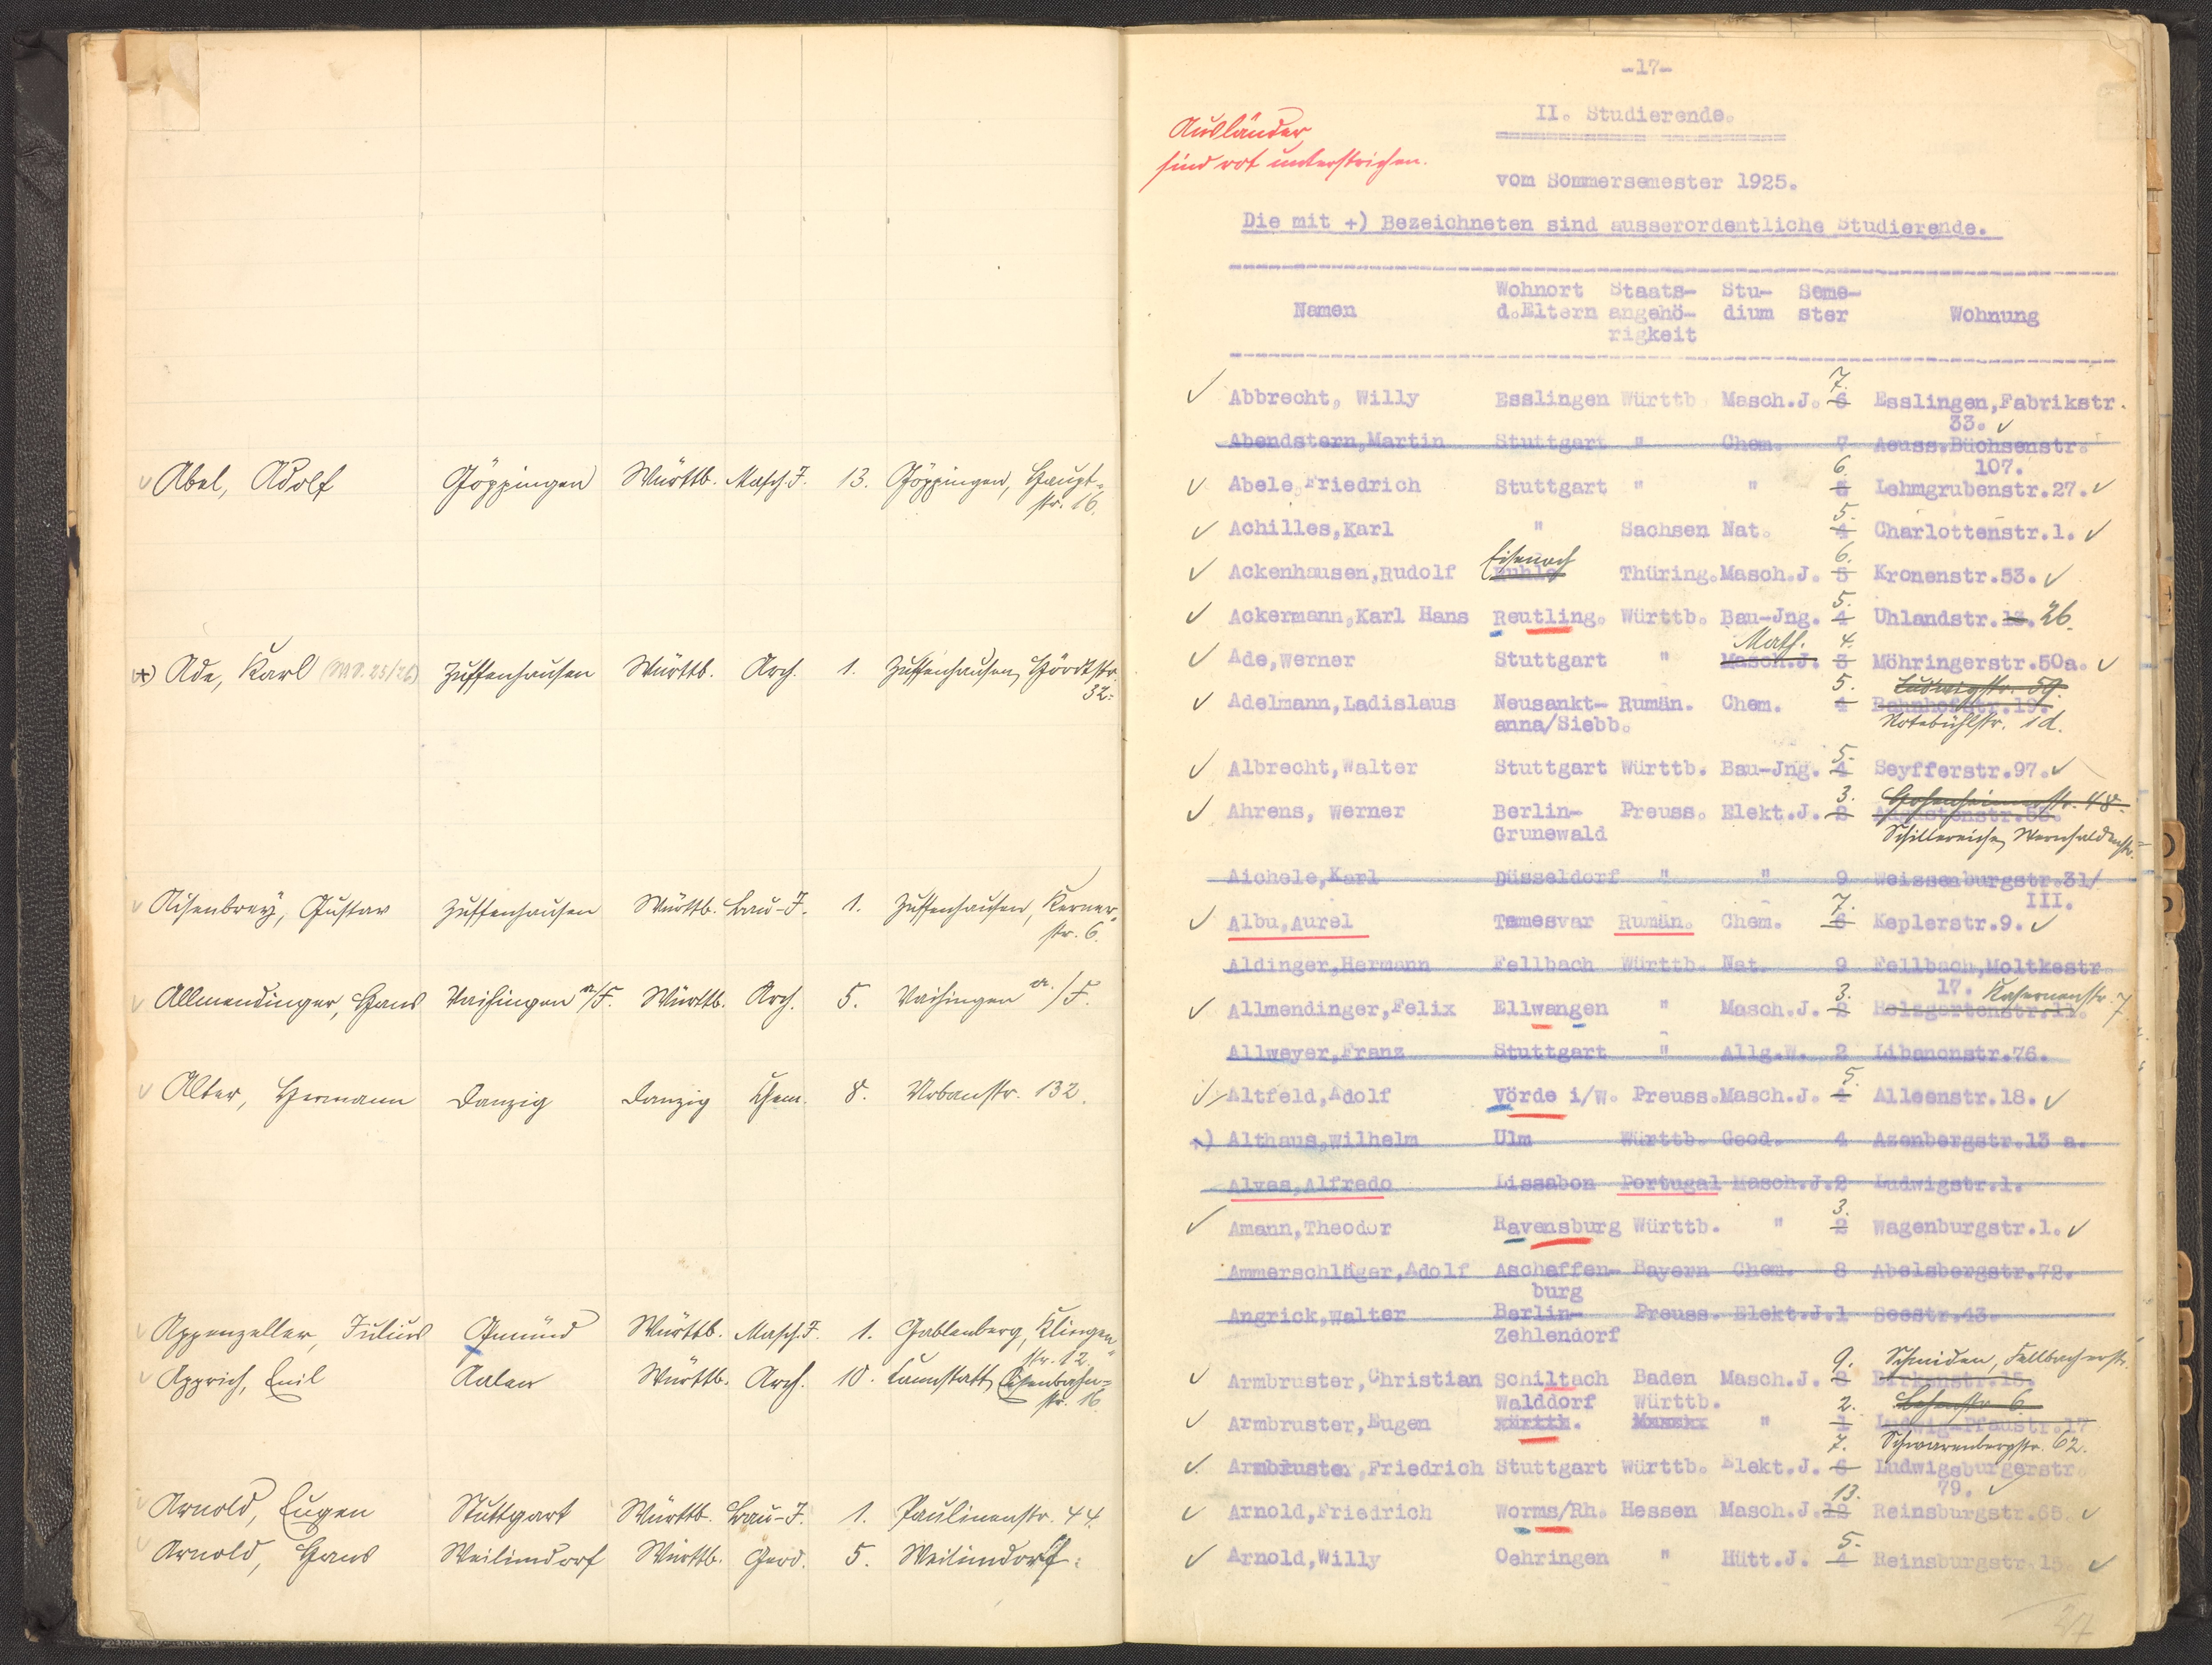 ✓ Abel, Adolf Göppingen Württb. Masch.J. 13. Göppingen, Haupt-
str. 16.
+) Ade, Karl (W.S. 25/26) Zuffenhausen Württb. Arch. 1. Zuffenhausen,
32.
✓ Aisenbrey, Gustav Zuffenhausen Württb. Bau-J. 1. Zuffenhausen, Kerner-
str. 6.
✓ Allmendinger, Hans Vaihingen a/F. Württb. Arch. 5. Vaihingen a./F.
✓ Alter, Hermann Danzig Danzig Chem. 8. Urbanstr. 132.
✓ Appenzeller, Julius Gmünd Württb. Masch.J. 1. Gablenberg, Klingen-
str. 12.
✓ Apprich, Emil Aalen Württb. Arch. 10. Cannstatt, Eisenbahn-
str. 16.
Arnold, Eugen Stuttgart Württb. Bau-J. 1. Paulinenstr. 44.
Arnold, Hans Weilimdorf Württb. Geod. 5. Weilimdorf.
-17-
II. Studierende.
Ausländer
sind rot unterstrichen.
vom Sommersemester 1925.
Die mit +) Bezeichneten sind ausserordentliche Studierende.
Wohnort Staats- Stu- Seme-
Namen d.Eltern angehö- dium ster Wohnung
rigkeit
7.
✓ Abbrecht, Willy Esslingen Württb Masch.J. 6 Esslingen,Fabrikstr.
33. ✓
Abendstern,Martin Stuttgart " Chem. 7 Aeuss.Büchsenstr.
6. 107.
✓ Abele,Friedrich Stuttgart " " 5 Lehmgrubenstr.27. ✓
5.
✓ Achilles,Karl " Sachsen Nat. 4 Charlottenstr.1. ✓
Eisenach 6.
✓ Ackenhausen,Rudolf Ruhla Thüring.Masch.J. 5 Kronenstr.53. ✓
5.
✓ Ackermann,Karl Hans Reutling. Württb. Bau-Jng. 4 Uhlandstr.13. 26.
Math. 4.
✓ Ade,Werner Stuttgart " Masch.J. 3 Möhringerstr.50a. ✓
5. Ludwigstr. 59.
✓ Adelmann,Ladislaus Neusankt- Rumän. Chem. 4 Bahnhofstr.19.
anna/Siebb. Rotebühlstr. 1d.
5.
✓ Albrecht,Walter Stuttgart Württb. Bau-Jng. 4 Seyfferstr.97. ✓
3. Hohenheimerstr. 48.
✓ Ahrens, Werner Berlin- Preuss. Elekt.J. 2 Augustenstr.53.
Grunewald Schillereiche, Wernhaldenstr.
Aichele,Karl Düsseldorf " " 9 Weissenburgstr.31/
7. III.
✓ Albu,Aurel Temesvar Rumän. Chem. 6 Keplerstr.9. ✓
Aldinger,Hermann Fellbach Württb. Nat. 9 Fellbach,Moltkestr
3. 17. Kasernenstr. 7
✓ Allmendinger,Felix Ellwangen " Masch.J. 2 Holzgartenstr.11.
Allweyer,Franz Stuttgart " Allg.W. 2 Libanonstr.76.
5.
✓ Altfeld,Adolf Vörde i/W. Preuss.Masch.J. 4 Alleenstr.18. ✓
+) Althaus,Wilhelm Ulm Württb. Geod. 4 Azenbergstr.13 a.
Alves,Alfredo Lissabon Portugal Masch.J.2 Ludwigstr.1.
3.
✓ Amann,Theodor Ravensburg Württb. " 2 Wagenburgstr.1. ✓
Ammerschläger,Adolf Aschaffen- Bayern Chem. 8 Abelsbergstr.72.
burg
Angrick,Walter Berlin- Preuss. Elekt.J.1 Seestr.43.
Zehlendorf
9. Schmiden, Fellbacherstr.
✓ Armbruster,Christian Schiltach Baden Masch.J. 8 Birkenstr.15.
Walddorf Württb. 2.
✓ Armbruster,Eugen " 1 Ludwig-Pfaustr.17
7. Schwarenbergstr. 62.
✓ Armbruster,Friedrich Stuttgart Württb. Elekt.J. 6 Ludwigsburgerstr.
13. 79. ✓
✓ Arnold,Friedrich Worms/Rh. Hessen Masch.J.12 Reinsburgstr.65. ✓
5.
✓ Arnold,Willy Oehringen " Hütt.J. 4 Reinsburgstr.15. ✓